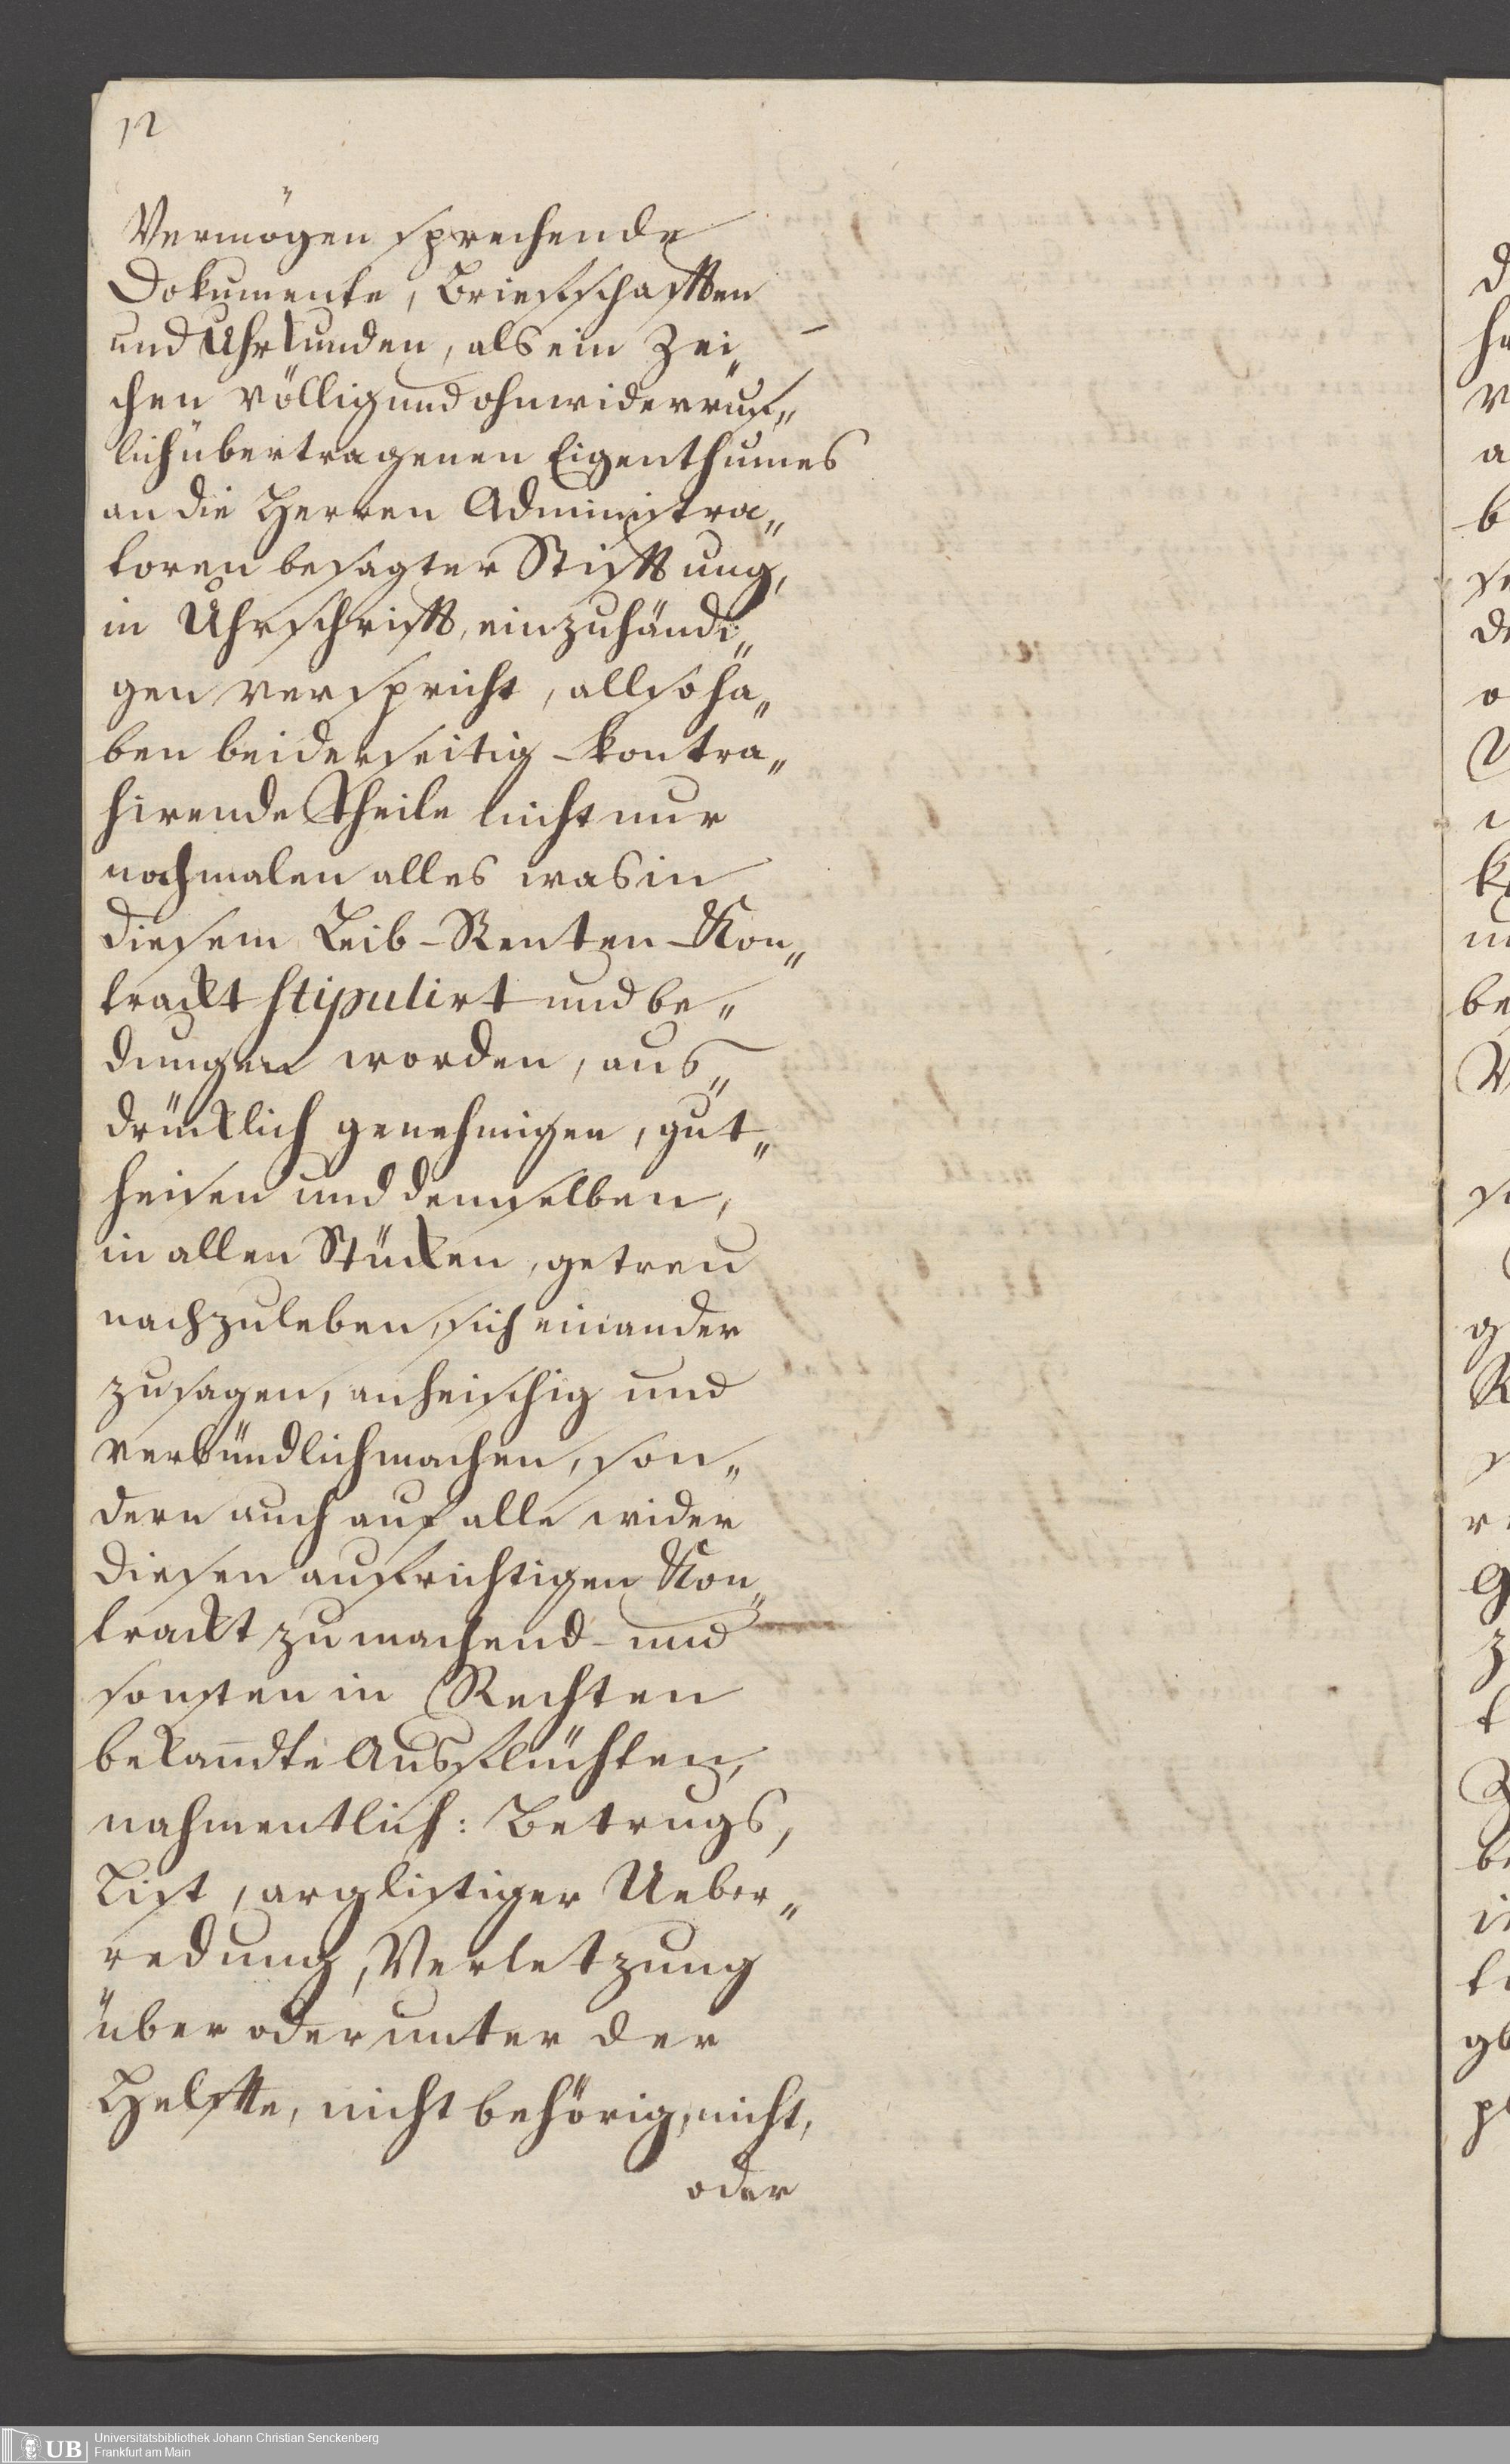 12
Vermögen sprechende
Dokumente, Briefschafften
und Uhrkunden, als ein Zei„
chen völlig und ohnwiderruf„
lich übertragenen Eigenthumes
an die Herren Administra„
toren besagter Stifftung,
in Uhrschrifft, einzuhändi„
gen verspricht, allso ha„
ben beiderseitig-kontra„
hirende Theile nicht nur
nochmalen alles was in
diesem Leib-Renten-Kon„
trackt stipulirt und be„
dungen worden, aus„
drücklich genehmigen, gut„
heisen und demselben,
in allen Stücken, getreu
nachzuleben, sich einander
zusagen, anheischig und
verbündlich machen, son„
dern auch auf alle wider
diesen aufrichtigen Kon„
trackt zu machend- und
sonsten in Rechten
bekan̄dte Ausflüchten,
nahmentlich: Betrugs,
List, arglistiger Ueber„
redung, Verletzung
über oder unter der
Helffte, nicht behörig, nicht,
oder
UB
Universitätsbibliothek Johann Christian Senckenberg
Frankfurt am Main